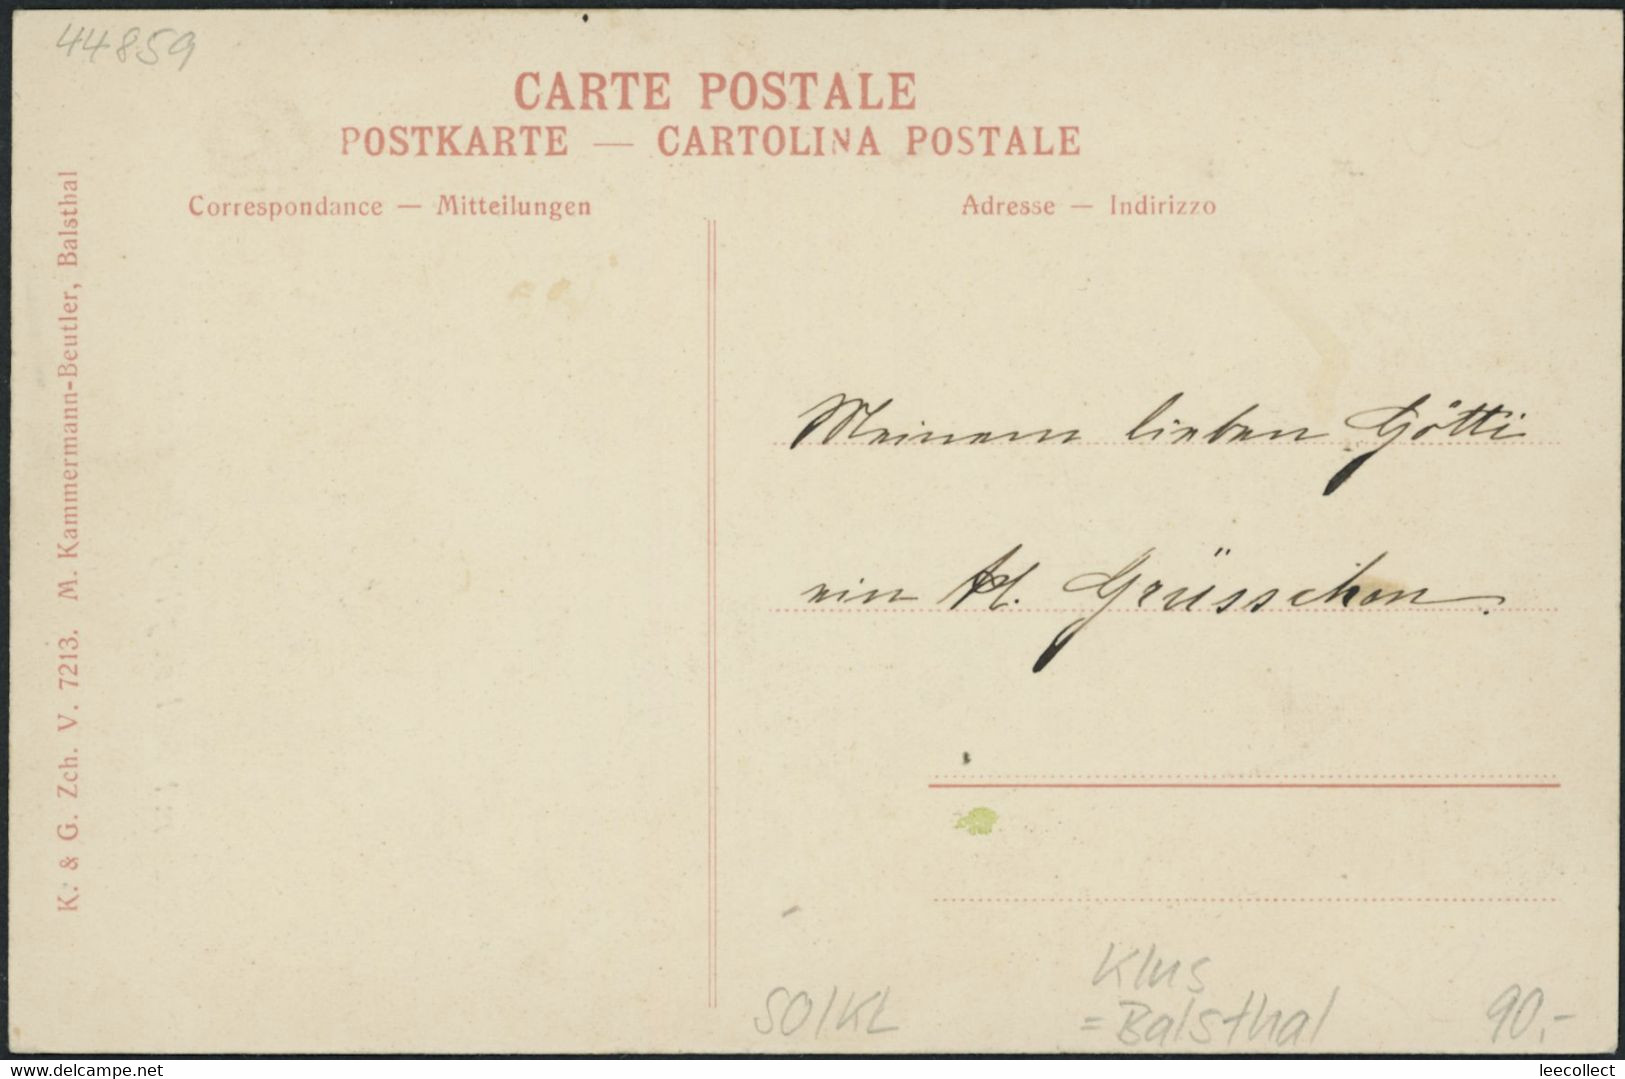 44859
CARTE POSTALE
POSTKARTE — CARTOLINA POSTALE
Correspondance — Mitteilungen
Adresse — Indirizzo
K. & G. Zch. V. 7213. M. Kammermann-Beutler, Balsthal
Meinem lieben Götti
ein kl. Grüsschen.
SO/KL
Klus
=Balsthal
90.-
www.delcampe.net
leecollect